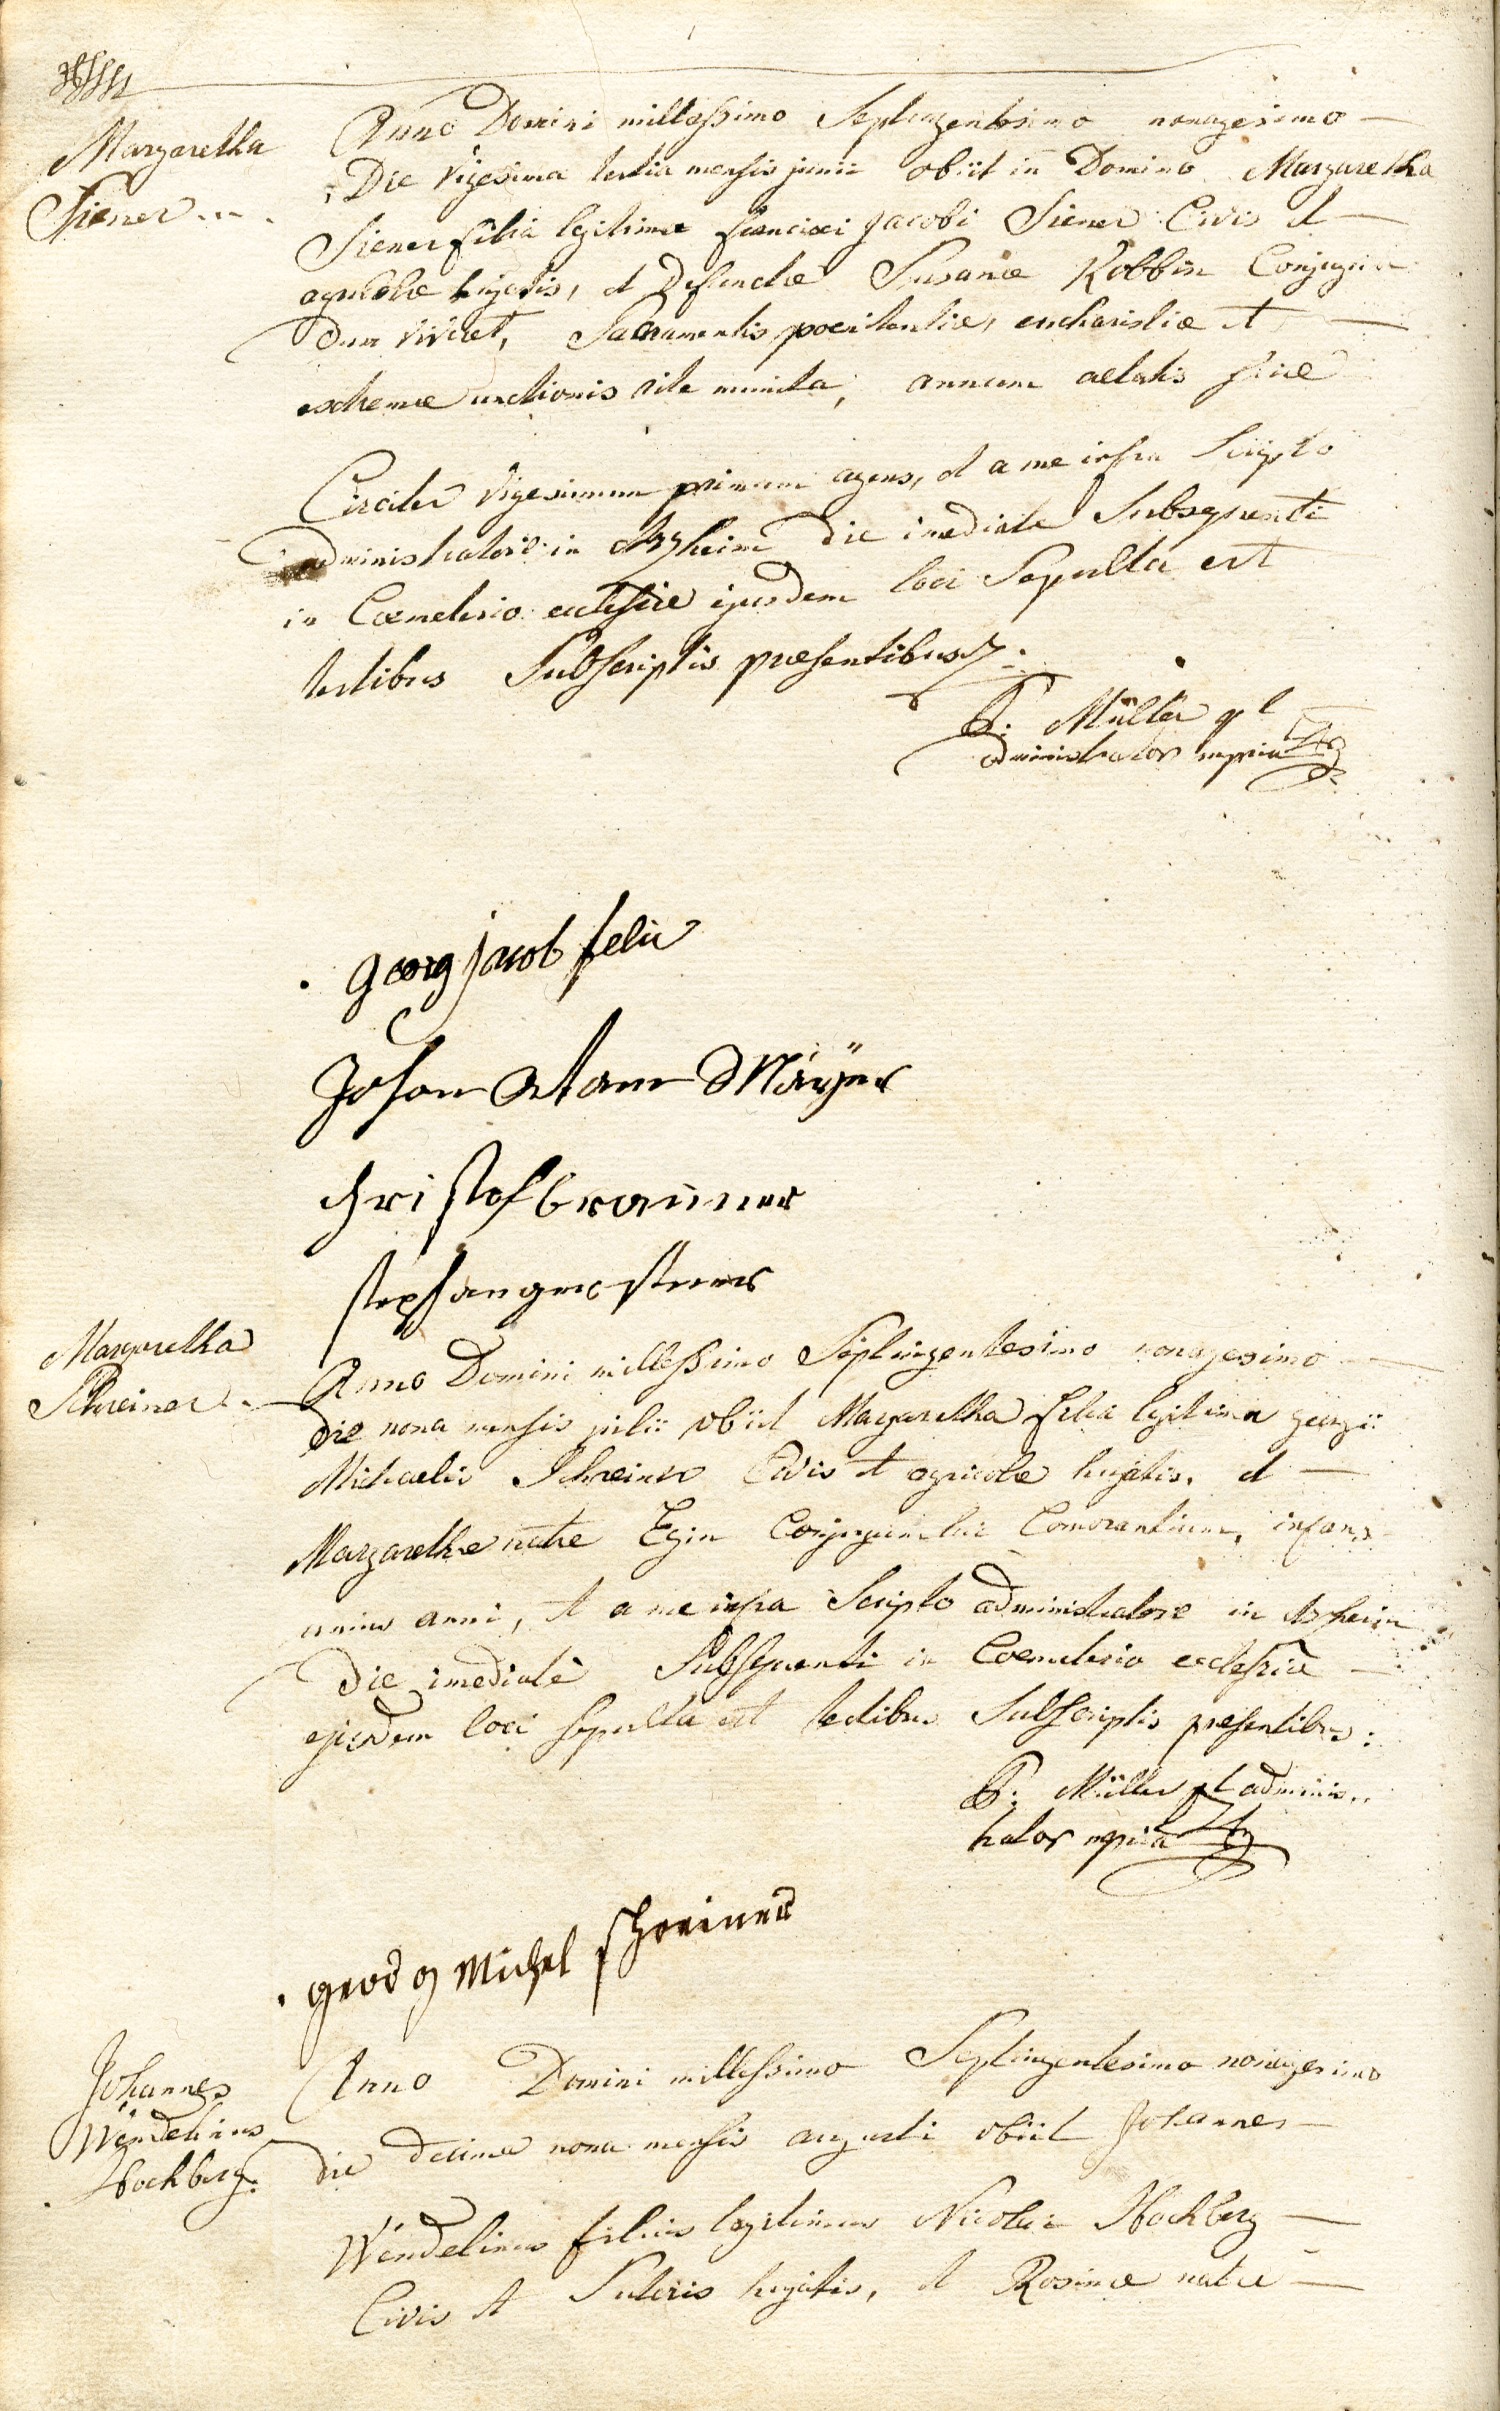 Margaretha
Siener
Anno Domini millessimo Septingentesimo nonagesimo
Die vigesima tertia mensis junii obiit in Domino Margaretha
Siener filia legitima francisci jacobi Siener Civis et
agricolæ hujatis, et Defunctæ Susanæ Robbin Conjugum
dum viveret, Sacramentis poenitentiæ, eucharistiæ et
extremæ unctionis rite munita, annum aetatis suæ
Circiter vigesimum primum agens, et a me infra Scripto
administratore in Arzheim die imediate Subsequenti
in Coemeterio ecclesiæ ejusdem loci Sepulta est
testibus Subscriptis præsentibus
P. Müller
administrator mpria
georg jacob felix
Johan Atam Maÿer
christof braüner
stephan
Margaretha
Schreiner
Anno Domini millessimo Septingentesimo nonagesimo
die nona mensis julii obiit Margaretha filia legitima georgii
Michaelis Schreiner Civis et agricolæ hujatis, et
Margarethæ natæ Egin Conjugum hic Comorantium, infans
unius anni, et a me infra Scripto administratore in Arzheim
die imediatè Subsequenti in Coemeterio ecclesiæ
ejusdem loci sepulta est testibus Subscriptis præsentibus:
P. Müller pt adminis..
trator mpria
georg Michel schreiner
Johannes
Wendelinus
Hochberg.
Anno Domini millessimo Septingentesimo nonagesimo
die decima nona mensis augusti obiit Johannes
Wendelinus filius legitimus Nicolai Hochberg
Civis et Sutoris hujatis, et Rosinæ natæ